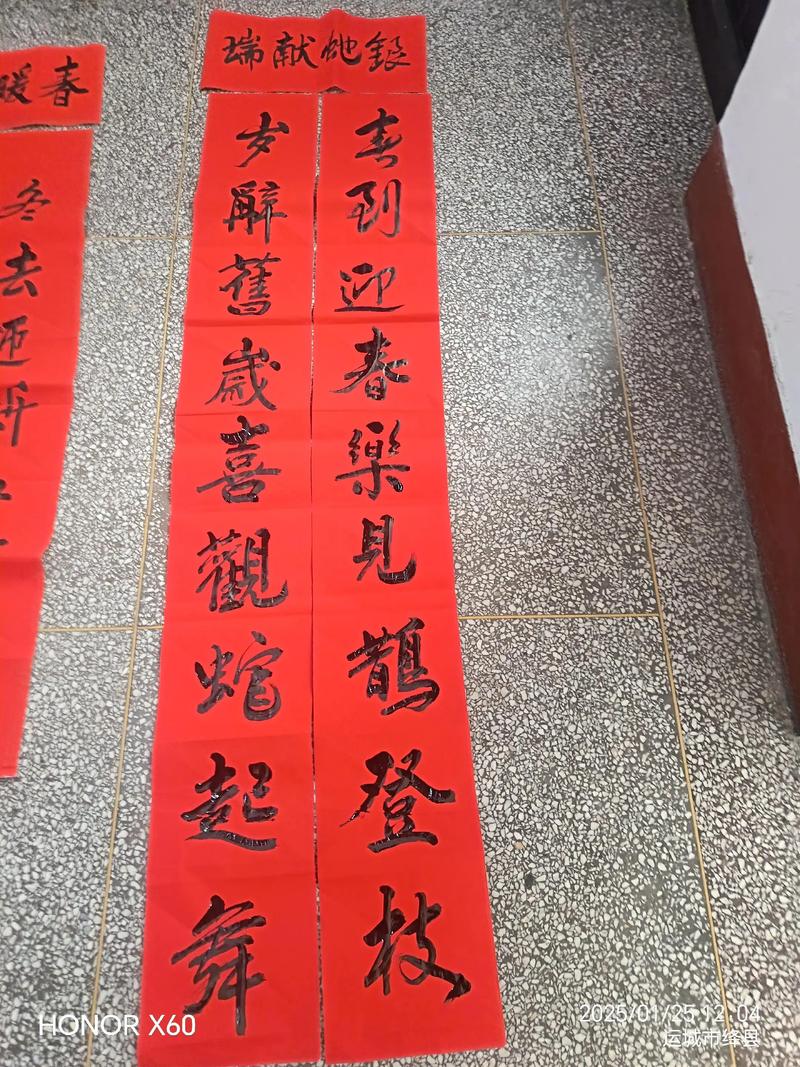 銀虵献瑞
春到迎春樂見鵲登枝
岁辭舊歲喜觀蛇起舞
春暖
冬去
HONOR X60
2025/01/25 12:04
运城市绛县